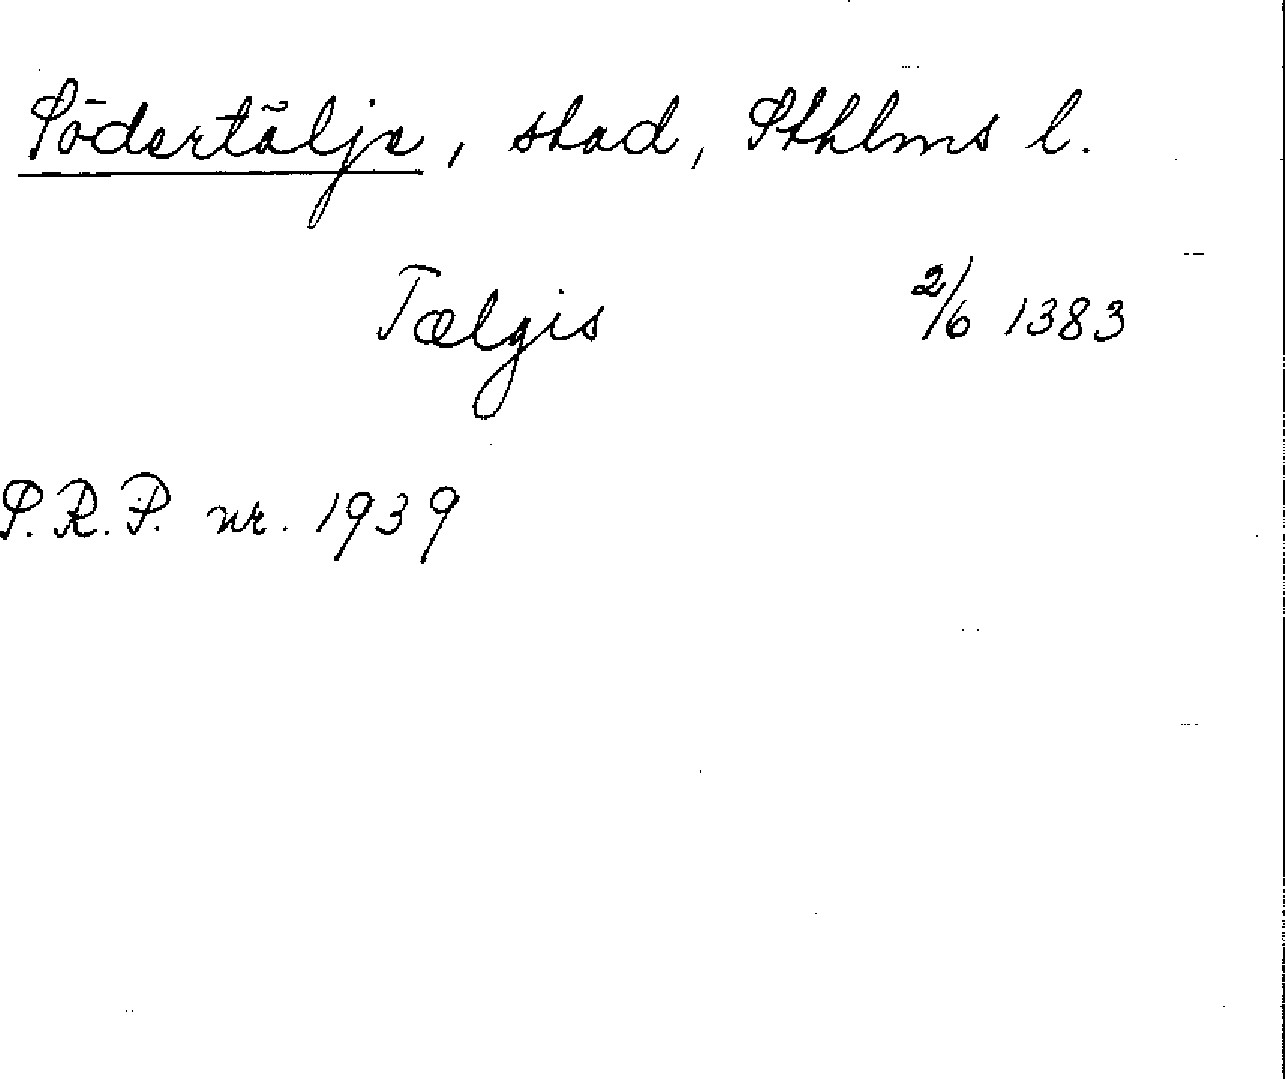 Södertälje, stad, Sthlms l.
Tælgis 2/6 1383
S.R.P. nr. 1939